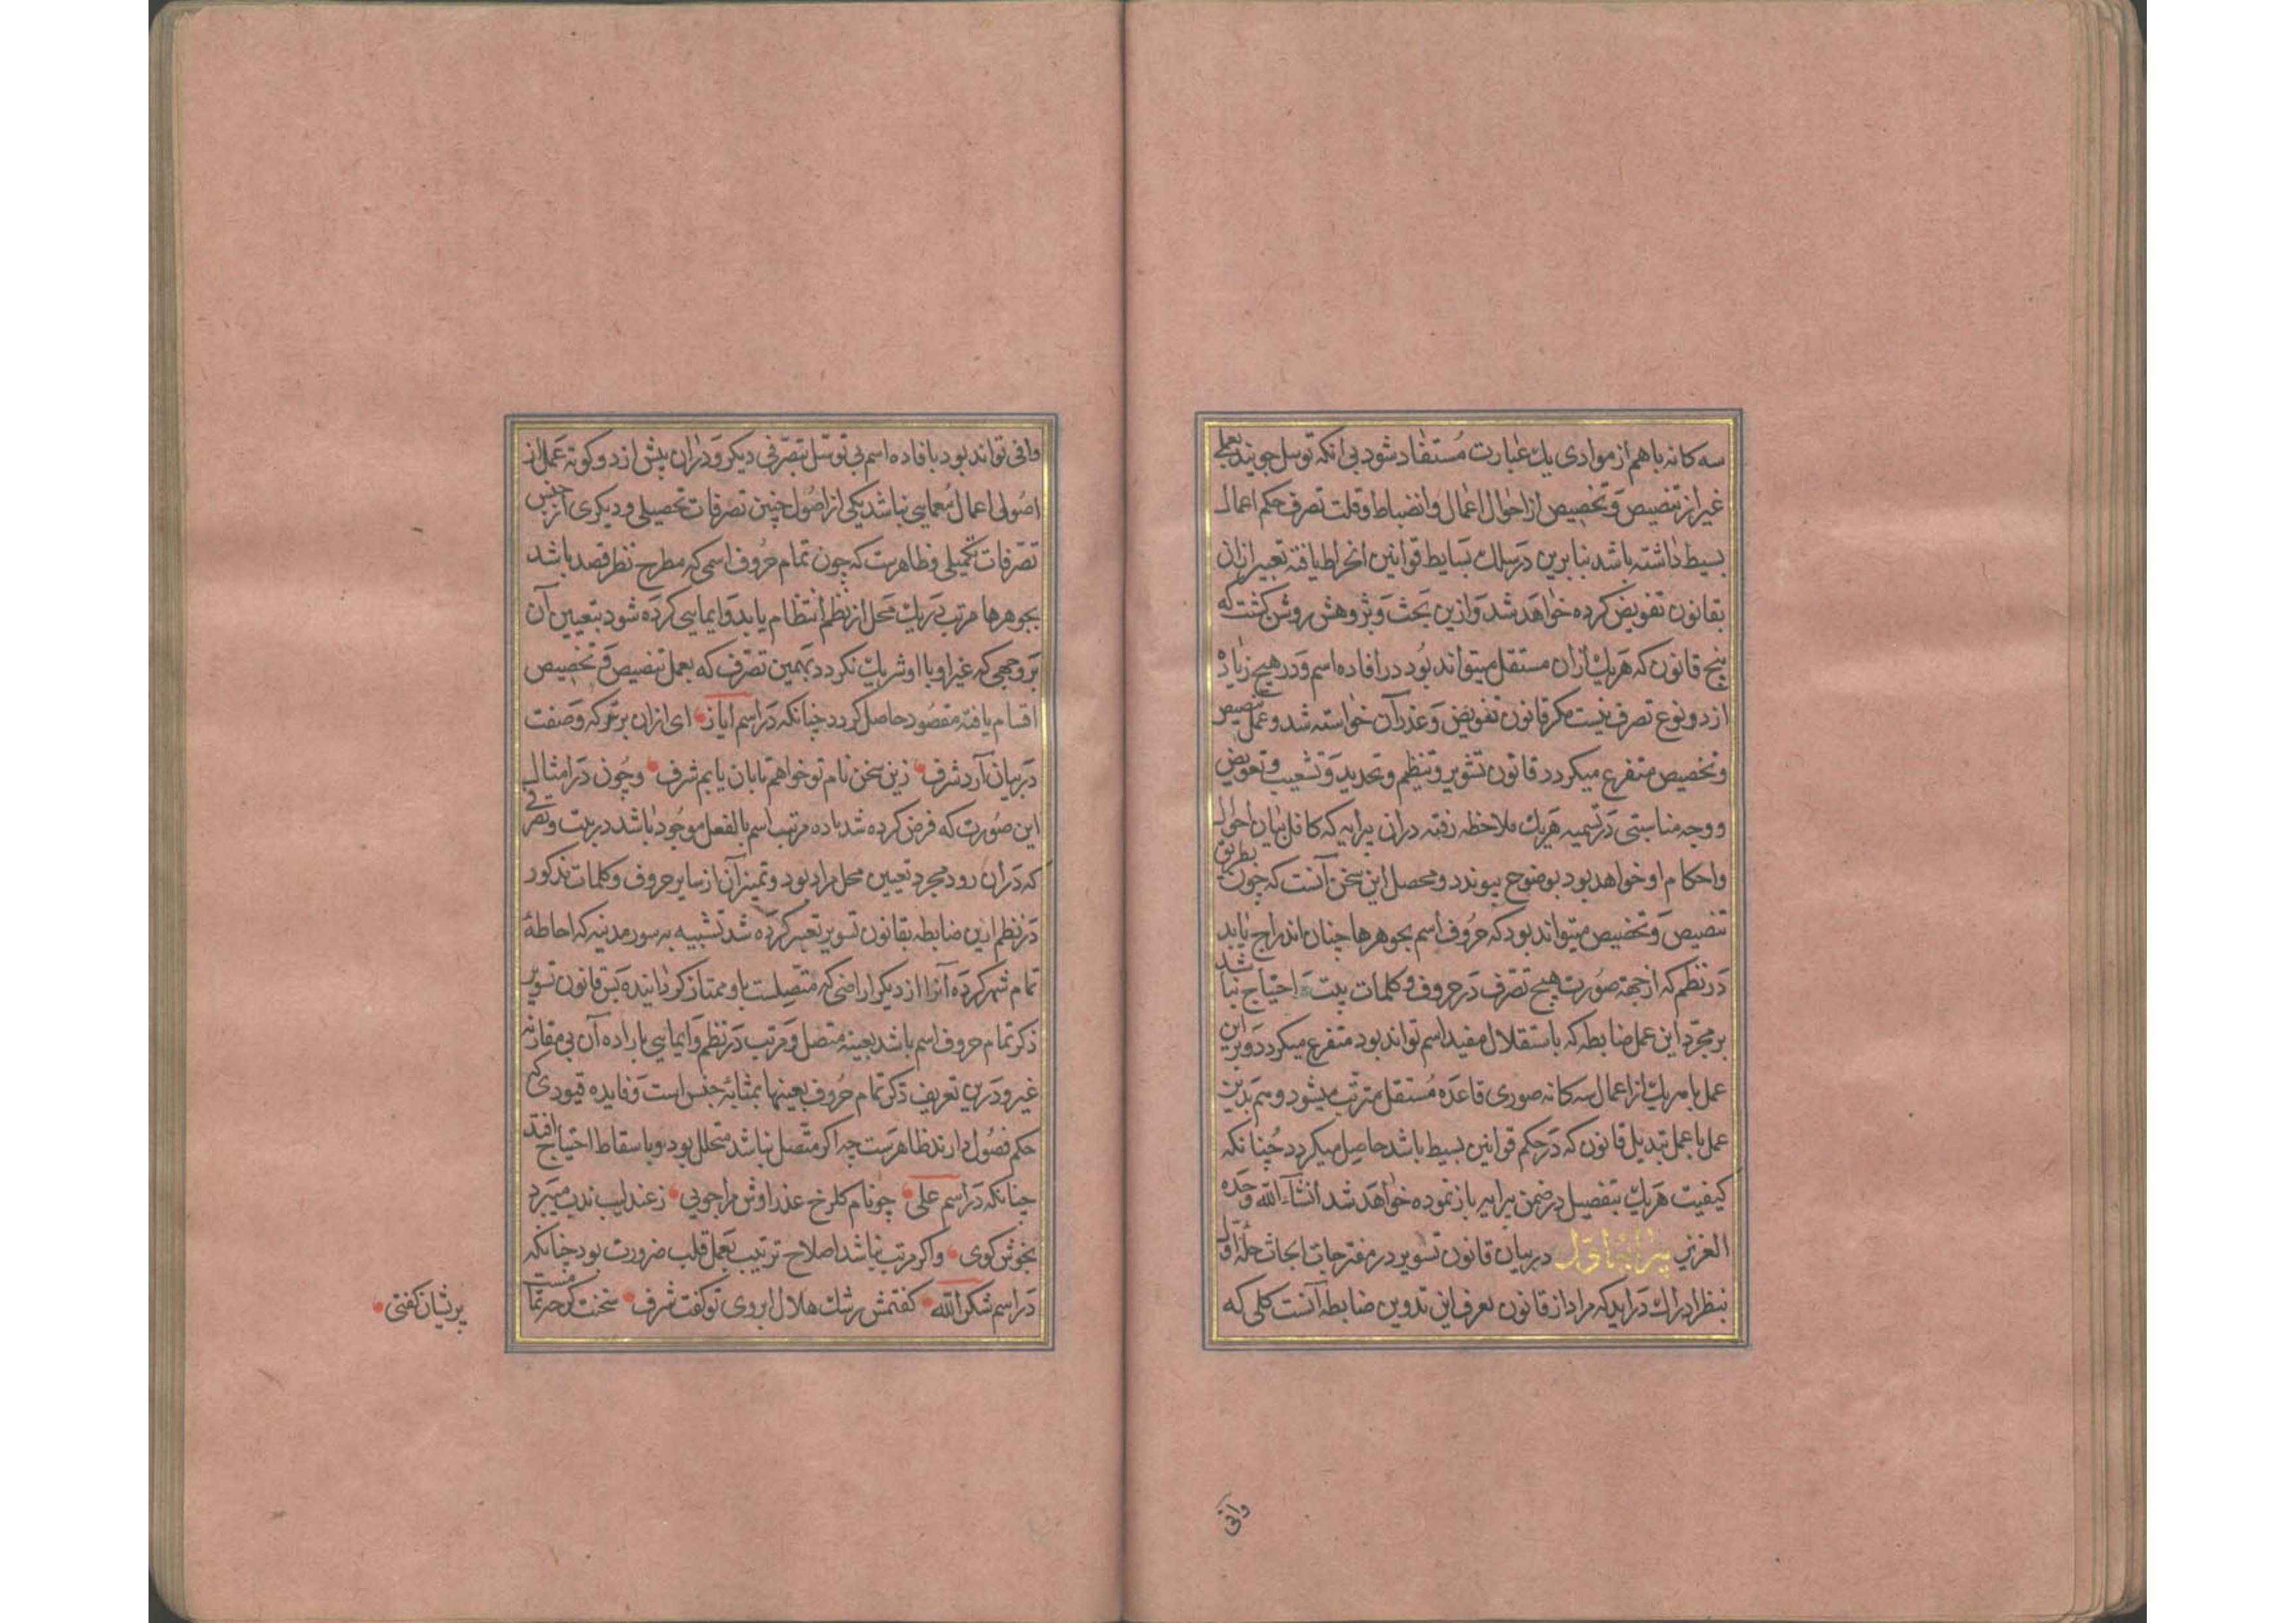 سه کانه باهم از موادی یك عبارت مستفاد شود بی انکه توسل جویند بعملی
غیر از تنصیص و تخصیص از احوال اعمال و انضباط و قلت تصرف حکم اعمال
بسیط داشته باشد بنابرین در سلك بسایط قوانین انخراط یافته تعبیر ازان
بقانون تفویض کرده خواهد شد و ازین بحث و پژوهش روشن کشت که
پنج قانون که هریك ازان مستقل میتواند بود در افاده اسم و در هیچ زیاده
از دو نوع تصرف نیست مکر قانون تفویض و عذر آن خواسته شد و عمل تنصیص
و تخصیص متفرع میکردد قانون تسویر و تنظیم و تحدید و تشعیب و تعویض
و وجه مناسبتی در تسمیه هریك ملاحظه رفته دران پیرایه که کافل بیان احوال
و احکام او خواهد بود بوضوح پیوندد و محصل این سخن آنست که چون بطریق
تنصیص و تخصیص میتواند بود که حروف اسم بجوهرها چنان اندراج یابد
در نظم که از جهة صورت هیچ تصرف در حروف و کلمات بیت احتیاج نباشد
بر مجرد این عمل ضابطه که باستقلال مفید اسم تواند بود متفرع میکردد و برین
عمل با هریك از اعمال سه کانه صوری قاعده مستقل مترتب میشود و هم بدین
عمل با عمل تبدیل قانون که در حکم قوانین بسیط باشد حاصل میکردد چنانکه
کیفیت هریك بتفصیل در ضمن پیرایه باز نموده خواهد شد انشاء الله وحده
العزیز پیرایۀ اول در بیان قانون تسویر در مفترجات ابحاث حلۀ اول
بنظر ادراك درآید که مراد از قانون بعرف این تدوین ضابطه آنست کلی که
وافی
وافی تواند بود بافاده اسم بی توسل تصرفی دیکر و دران بیش از دو کونه عمل از
اصولی اعمال معمایی نباشد یکی از اصول چنین تصرفات تحصیلی و دیکری از جنس
تصرفات تکمیلی و ظاهرست که چون تمام حروف اسمی که مطرح نظر قصد باشد
بجوهرها مرتب در یك محل از نظم انتظام یابد و ایمایی کرده شود بتعیین آن
بر وجهی که غیر او با او شریك نکردد بهمین تصرف که بعمل تنصیص و تخصیص
اقسام یافته مقصود حاصل کردد چنانکه در اسم ایاز ای ازان برتر که وصفت
در بیان آرد شرف زین سخن نام تو خواهم تابان یابم شرف و چون در امثال
این صورت که فرض کرده شد ماده مرتب اسم بالفعل موجود باشد در بیت و تصرفی
که دران رود مجرد تعیین محل مراد بود و تمییز آن از سایر حروف و کلمات مذکور
در نظم این ضابطه بقانون تسویر تعبیر کرده شد تشبیه به سور مدینه که احاطۀ
تمام شهر کرده آنرا از دیکر اراضی که متصلست باو ممتاز کردانیده پس قانون تسویر
ذکر تمام حروف اسم باشد بعینه متصل و مرتب در نظم و ایمایی باراده آن بی مقارنه
غیر و درین تعریف ذکر تمام حروف بعینها بمثابۀ جنس است و فایده قیودی که
حکم فصول دارند ظاهرست چه اکر متصل نباشد متحلل بود و باسقاط احتیاج افتد
چنانکه در اسم علی چو نام کلرخ عذرا وش مرا جویی ز عندلیب ندیـ میبرد
بخوش کوی و اکر مرتب نباشد اصلاح ترتیب بعمل قلب ضرورت بود چنانکه
در اسم شکرالله کفتمش رشك هلال ابروی تو کفت شرف سخنت کرچه تمامست
پریشان کفتی